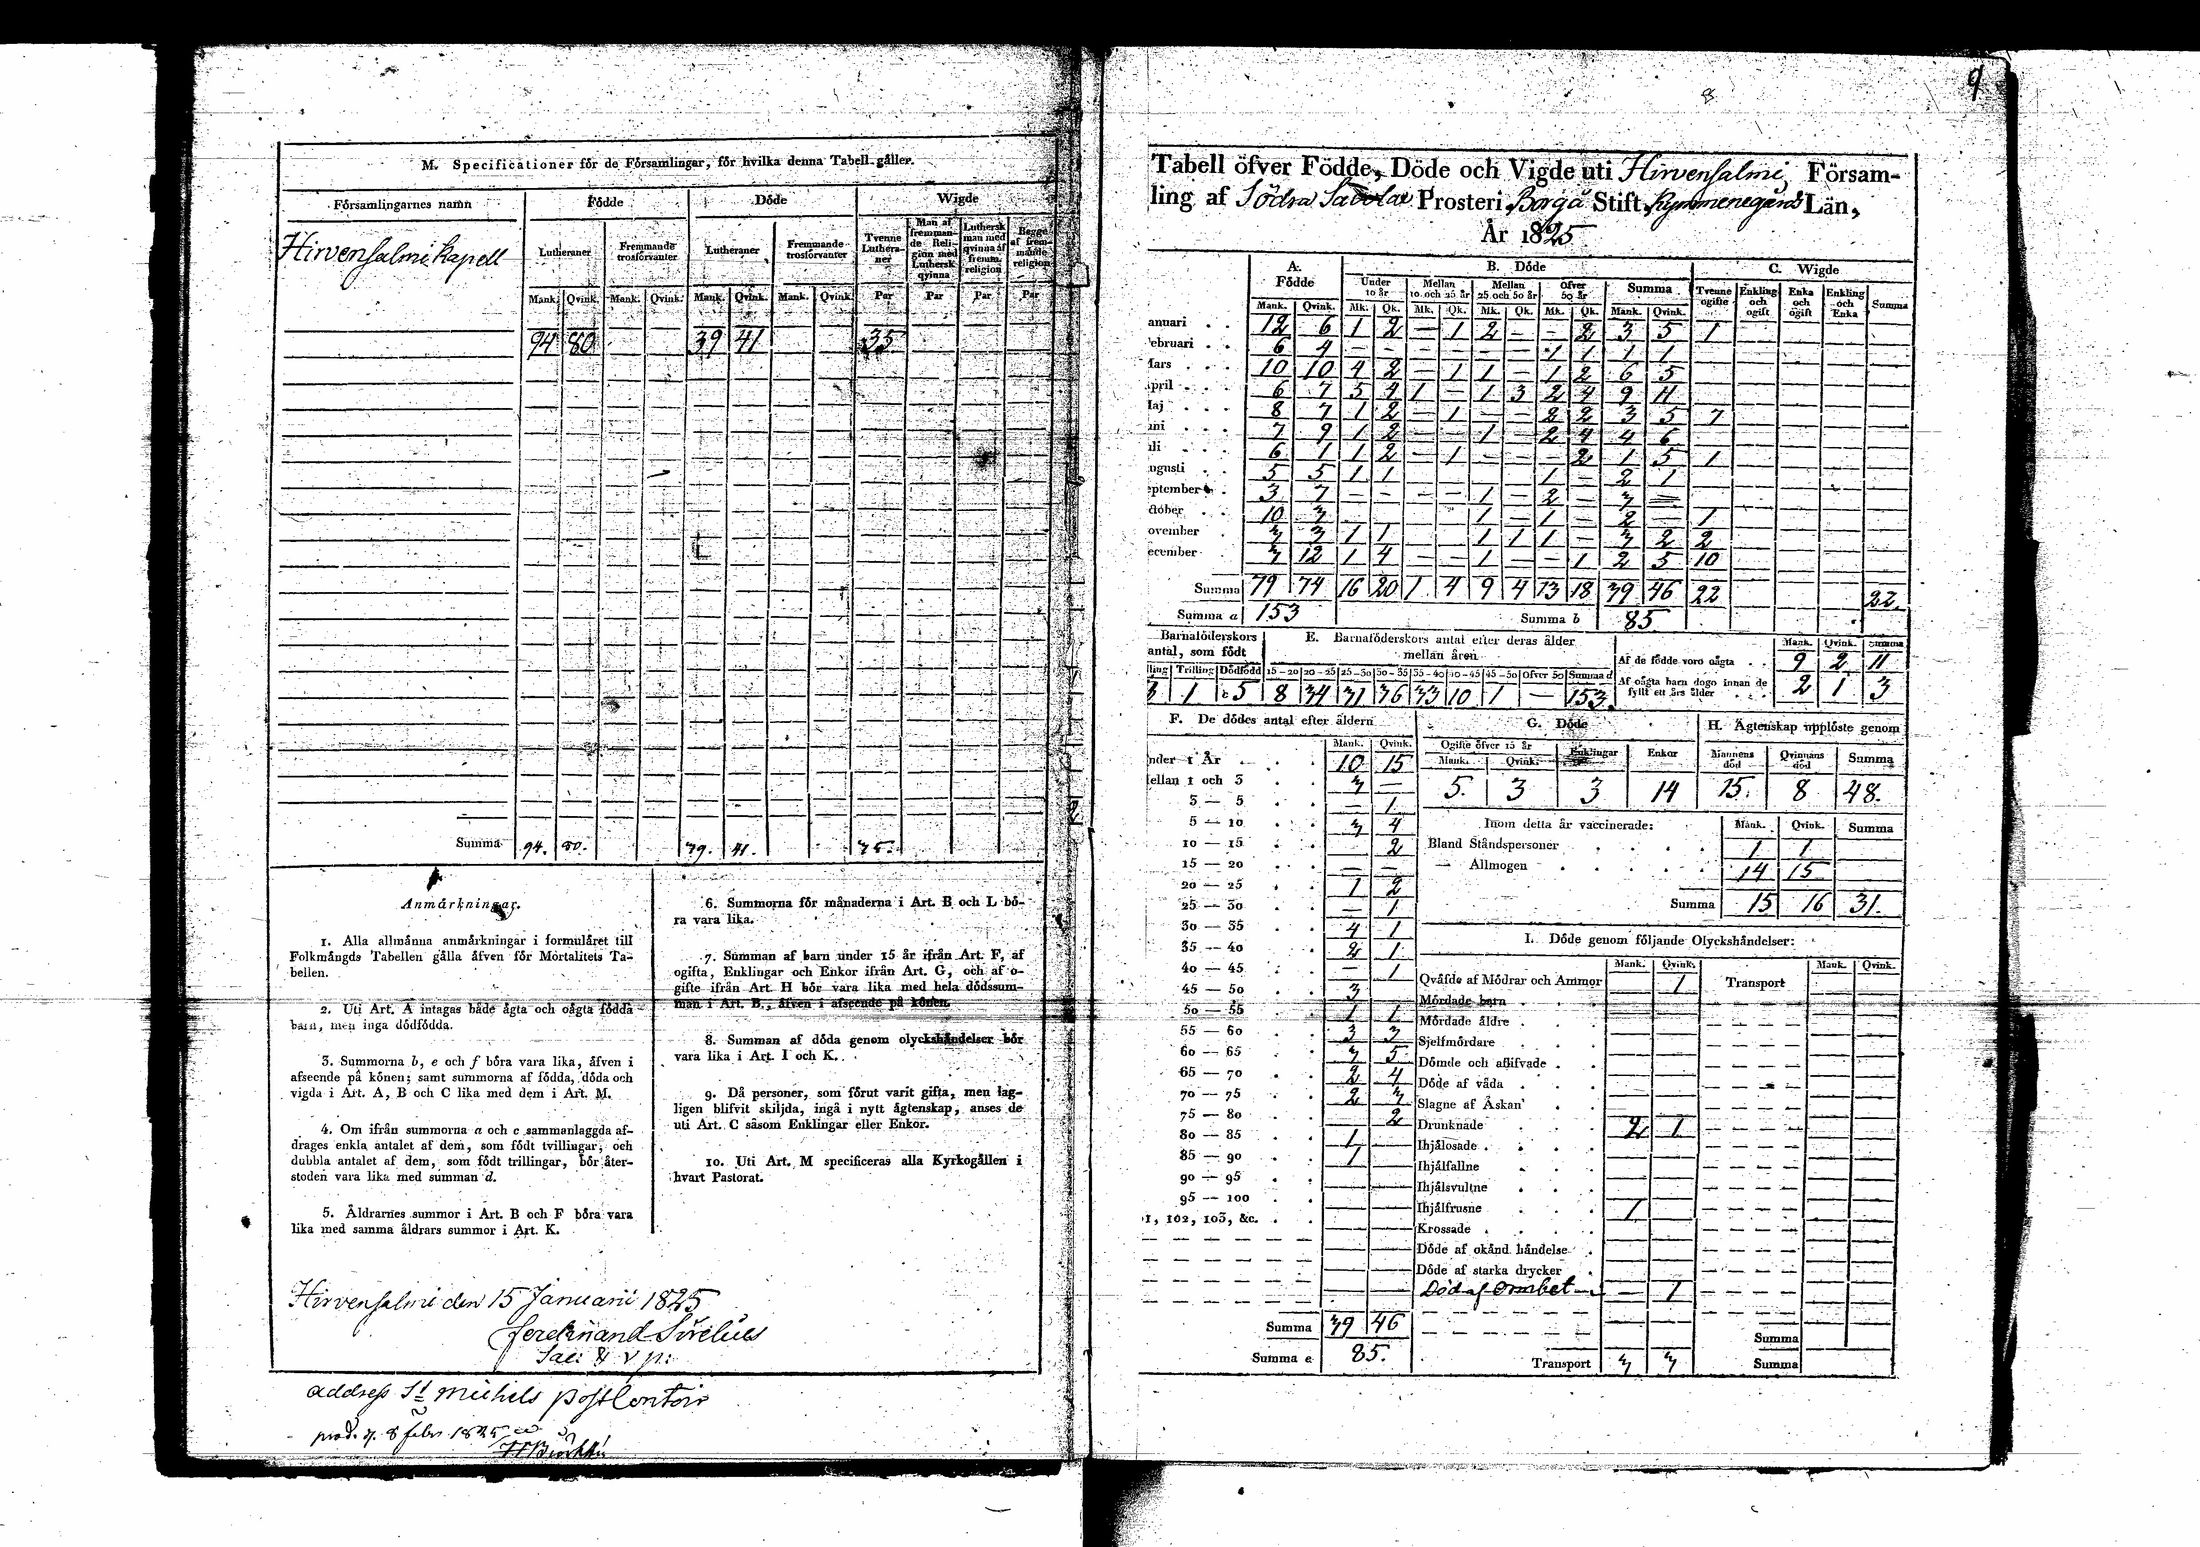 9
8
M. Specificationer för de Församlingar, för hvilka denna Tabell gäller.
Församlingarnes namn Födde Döde Wigde
Lutheraner Fremmande trosförvanter Lutheraner Fremmande trosförvanter Tvenne Lutheraner Man af fremmande Religion med Luthersk qvinna Luthersk man med qvinna af fremm. religion Begge af fremmande religion
Mank. Qvink. Mank. Qvink. Mank. Qvink. Mank. Qvink. Par Par Par Par
Hirvensalmi Kapell
94 80 39 41 35
Summa 94. 80. 39. 41. 35.
Anmärkningar.
1. Alla allmänna anmärkningar i formuläret till
Folkmängds Tabellen gälla äfven för Mortalitets Ta-
bellen.
2. Uti Art. A intagas både ägta och oägta födda
barn, men inga dödfödda.
3. Summorna b, e och f böra vara lika, äfven i
afseende på könen; samt summorna af födda, döda och
vigda i Art. A, B och C lika med dem i Art. M.
4. Om ifrån summorna a och c sammanlaggda af-
drages enkla antalet af dem, som födt tvillingar, och
dubbla antalet af dem, som födt trillingar, bör åter-
stoden vara lika med summan d.
5. Åldrarnes summor i Art. B och F böra vara
lika med samma åldrars summor i Art. K.
6. Summorna för månaderna i Art. B och L bö-
ra vara lika.
7. Summan af barn under 15 år ifrån Art. F, af
ogifta, Enklingar och Enkor ifrån Art. G, och af o-
gifte ifrån Art. H bör vara lika med hela dödssum-
man i Art. B., äfven i afseende på könen.
8. Summan af döda genom olyckshändelser bör
vara lika i Art. I och K.
9. Då personer, som förut varit gifta, men lag-
ligen blifvit skiljda, ingå i nytt ägtenskap, anses de
uti Art. C såsom Enklingar eller Enkor.
10. Uti Art. M specificeras alla Kyrkogällen i
hvart Pastorat.
Hirvensalmi den 15 Januarii 1825
Ferdinand Sirelius
Sac: & v p:
address St Michels post Contoir
prod. d. 8 febr 1825
Tabell öfver Födde, Döde och Vigde uti Hirvensalmi Försam-
ling af Södra Savolax Prosteri, Borgå Stift, Kymmenegårds Län,
År 1825
A. Födde B. Döde C. Wigde
Under 10 år Mellan 10 och 25 år Mellan 25 och 50 år Öfver 50 år Summa Tvenne ogifte Enkling och ogift Enka och ogift Enkling och Enka Summa
Mank. Qvink. Mk. Qk. Mk. Qk. Mk. Qk. Mk. Qk. Mank. Qvink.
anuari 12 6 1 2 — 1 2 — — 2 3 5 1
ebruari 6 4 — — — — — — 1 1 1 1
Mars 10 10 4 2 — 1 1 — 1 2 6 5
April 6 7 5 4 1 — 1 3 2 4 9 11
Maj 8 7 1 2 — 1 — — 2 2 3 5 7
uni 7 9 1 2 — — 1 — 2 4 4 6
uli 6 1 1 2 — 1 — — — 2 1 5 1
ugusti 5 5 1 1 1 — 2 1
eptember 3 7 — — — — 1 — 2 — 3 —
ctober 10 3 1 — 1 — 2 — 1
ovember 3 3 1 1 1 1 1 — 3 2 2
ecember 3 12 1 4 — — 1 — — 1 2 5 10
Summa 79 74 16 20 1 4 9 4 13 18 39 46 22 22.
Summa a 153 Summa b 85
Barnaföderskors antal, som födt
lling Trilling Dödfödd
3 1 c 5
E. Barnaföderskors antal efter deras ålder mellan åren
15—20 20—25 25—30 30—35 35—40 40—45 45—50 Öfver 50 Summa d
8 34 31 36 33 10 1 — 153.
Mank. Qvink. Summa
Af de födde voro oägta 9 2 11
Af oägta barn dogo innan de fyllt ett års ålder 2 1 3
F. De dödes antal efter åldern
Mank. Qvink.
nder 1 År 10 15
ellan 1 och 3 3 —
3 — 5 — 1
5 — 10 3 4
10 — 15 2
15 — 20 — —
20 — 25 1 2
25 — 30 — 1
30 — 35 4 1
35 — 40 2 1
40 — 45 — 1
45 — 50 3
50 — 55 1 1
55 — 60 3 3
60 — 65 3 5
65 — 70 2 4
70 — 75 2 3
75 — 80 2
80 — 85 1
85 — 90 1
90 — 95
95 — 100
1, 102, 103, &c.
Summa 39 46
Summa e 85.
G. Döde
Ogifte öfver 15 år Enklingar Enkor
Mank. Qvink.
5. 3 3 14
H. Ägtenskap upplöste genom
Mannens död Qvinnans död Summa
15. 8 48.
Inom detta år vaccinerade: Mank. Qvink. Summa
Bland Ståndspersoner 1 1
— Allmogen 14 15
Summa 15 16 31.
I. Döde genom följande Olyckshändelser:
Mank. Qvink. Mank. Qvink.
Qväfde af Mödrar och Ammor 1 Transport
Mördade barn
Mördade äldre
Sjelfmördare
Dömde och aflifvade
Döde af våda
Slagne af Åskan
Drunknade 2 1
Ihjälosade
Ihjälfallne
Ihjälsvultne
Ihjälfrusne 1
Krossade
Döde af okänd händelse
Döde af starka drycker
Död af — 1
Summa
Transport 3 3 Summa